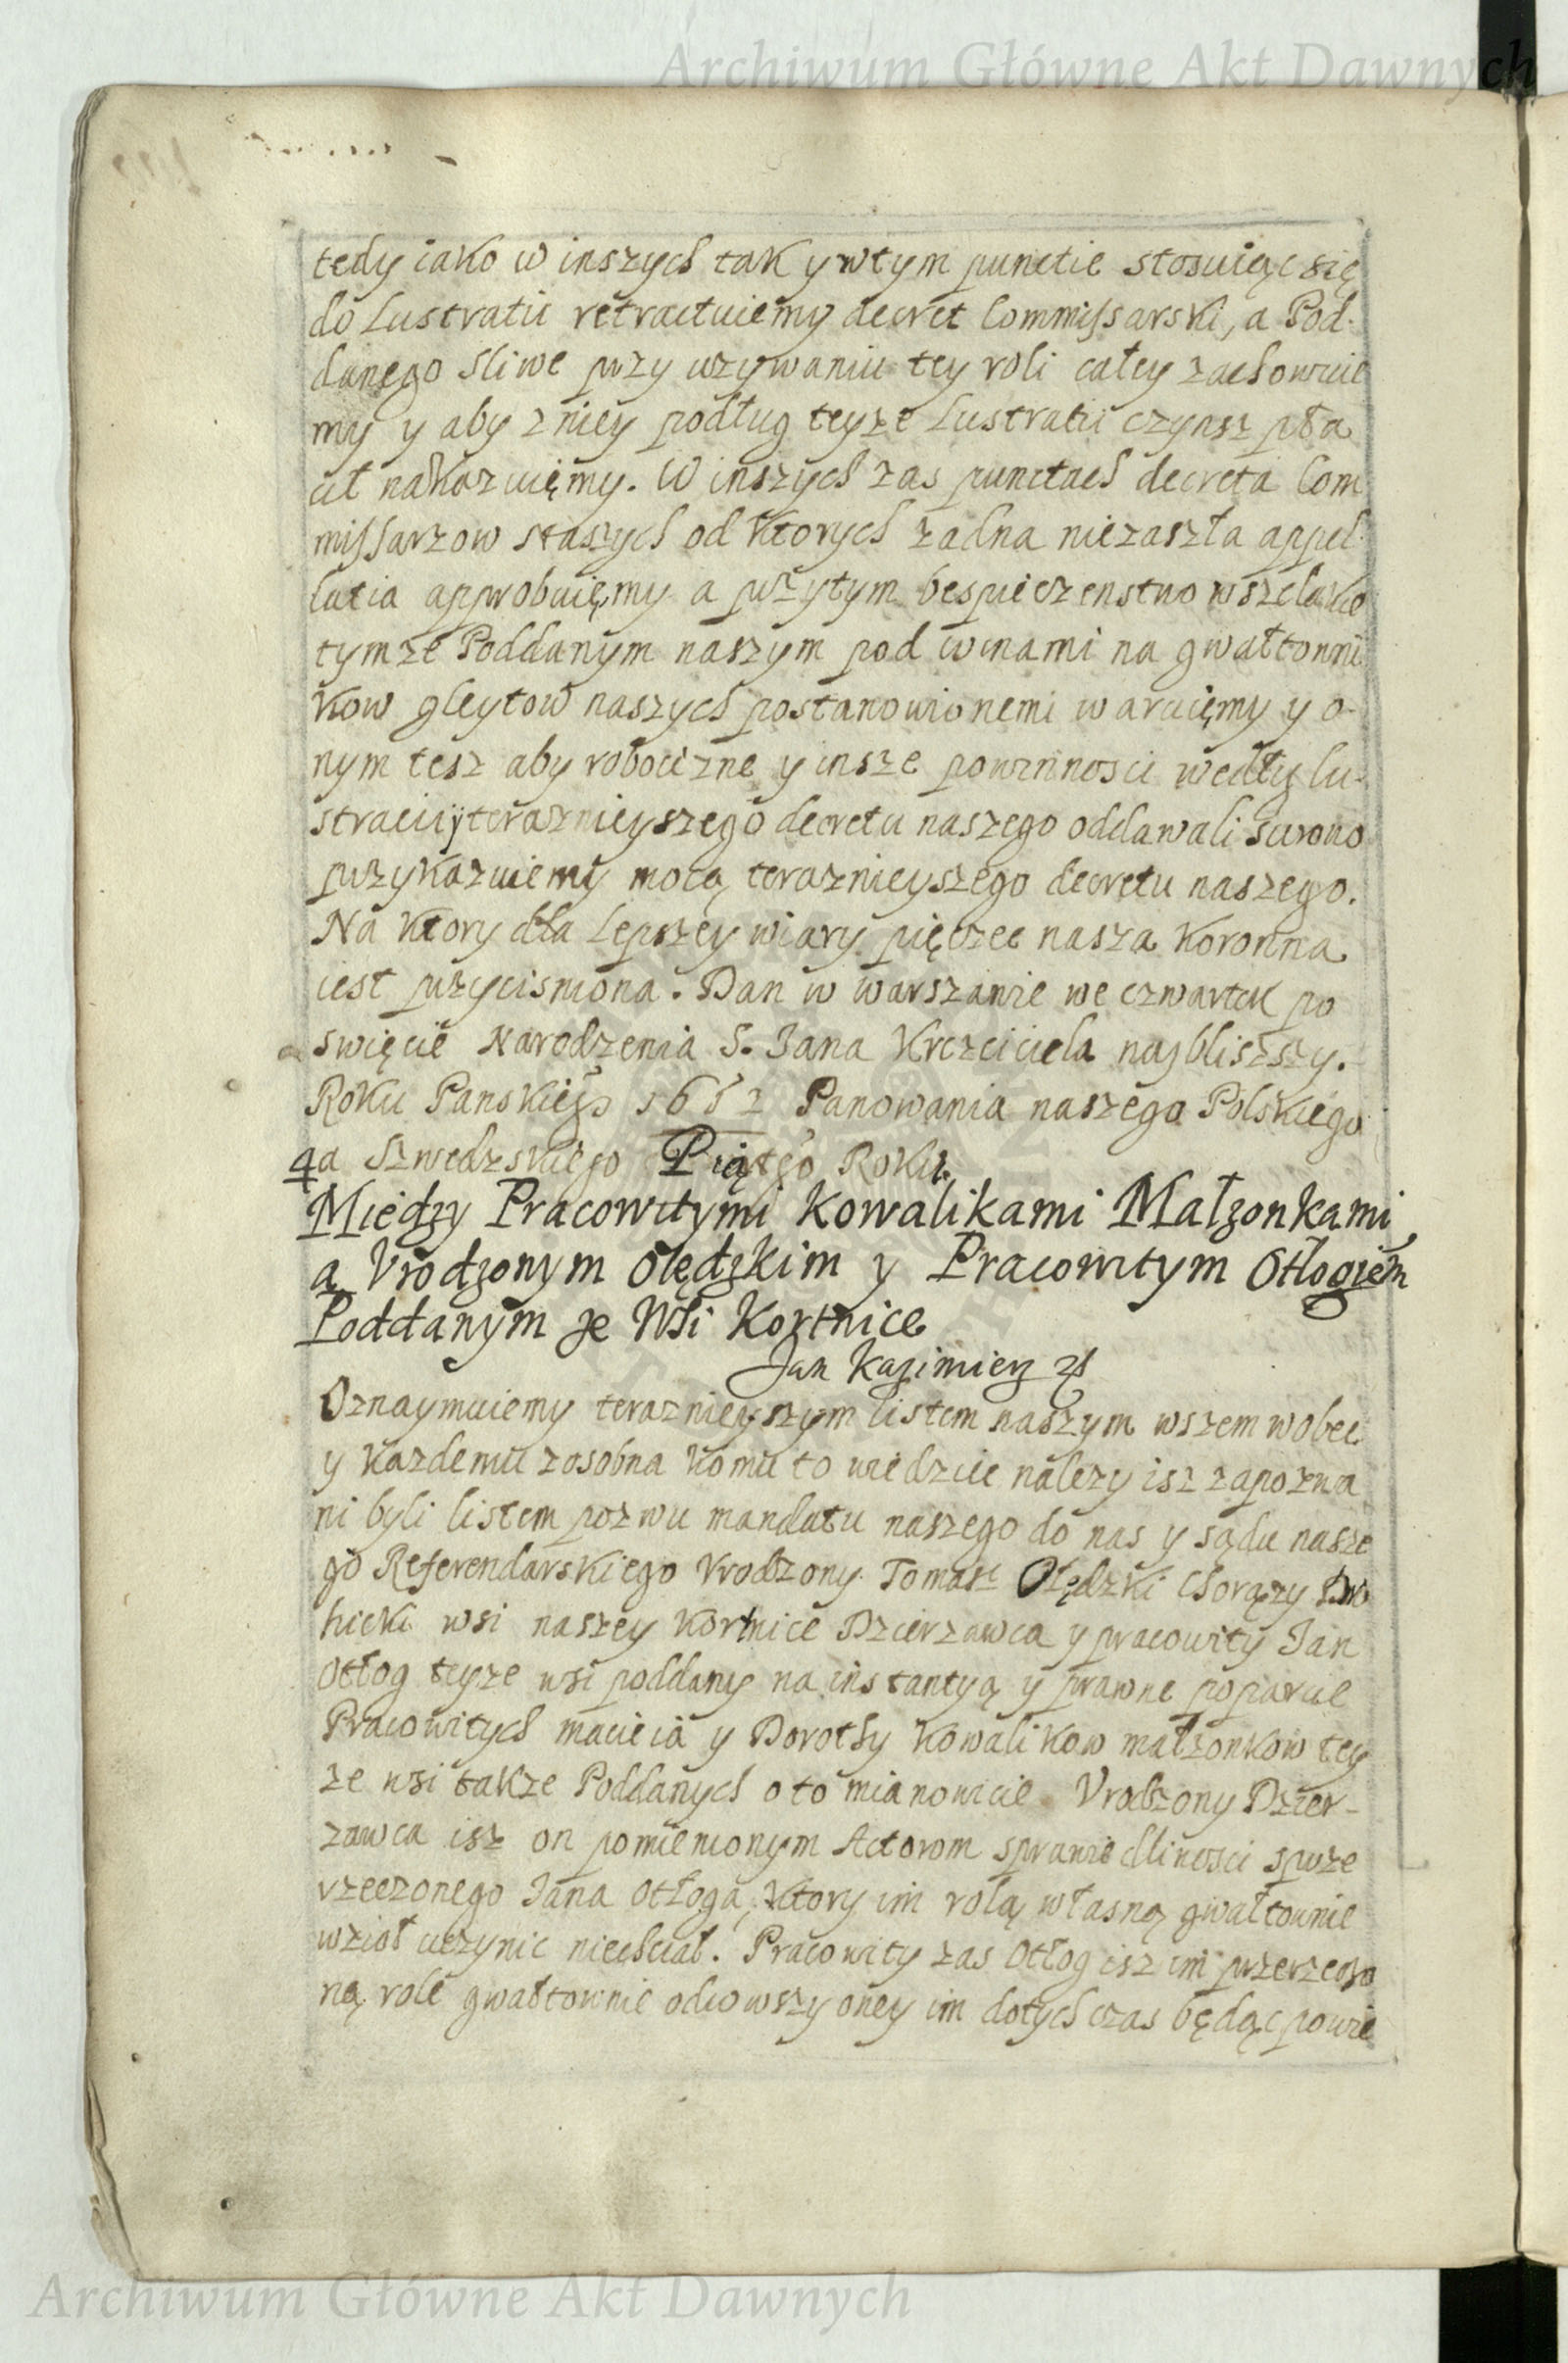 Archiwum Główne Akt Dawnych
tedy iako w inszych tak y wtym punctie stosuiąc się
do Lustratii retractuiemy decret Commissarski, a Pod-
danego Sliwe przy uzywaniu tey roli całey zachowuie
my y aby z niey podług teyze Lustratii czynsz pła
cił nakazuięmy. W inszych zas punctach decreta Com
missarzow naszych od ktorych zadna niezaszła appel-
latia approbuięmy a przytym bespieczenstwo wszelakie
tymze Poddanym naszym pod winami na gwałtowni
kow gleytow naszych postanowionemi waruięmy y o-
nym tesz aby robocizne y insze powinnosci według lu-
straciiy teraznieyszego decretu naszego oddawali surowo
przykazuiemy mocą teraznieyszego decretu naszego.
Na ktory dla lepszey wiary pięczec nasza koronna
iest przycisniona. Dan w warszawie we czwartek po
swięcie Narodzenia S. Jana Krzciciela najblisszy.
Roku Panskiego 1652 Panowania naszego Polskiego
4 a Szwedzskiego Piątego Roku.
Między Pracowitymi Kowalikami Małzonkami
a Vrodzonym Olędzkim y Pracowitym Otłogięm
Poddanym ze Wsi Kortnice
Jan Kazimierz
Oznaymuiemy terazniejszym listem naszym wszem wobec
y kazdemu zosobna komu to wiedziec nalezy isz zapozwa
ni byli listem pozwu mandatu naszego do nas y sądu nasze
go Referendarskiego Vrodzony Tomasz Olędzki Chorązy Dro
hicki wsi naszey Kortnice Dzierzawca y pracowity Jan
Otłog teyze wsi poddany na instantyą y prawne poparcie
Pracowitych macieia y Dorothy Kowalikow małzonkow tey
ze wsi takze Poddanych o to mianowicie Vrodzony Dzier-
zawca isz on pomienionym Actorom sprawiedliwosci sprze
rzeczonego Jana Otłoga, ktory im rolą własną gwałtownie
wzioł uczynic niechciał. Pracowity zas Otłog isz im przerzeczo
ną role gwałtownie odiowszy oney im dotychczas będąc powie
Archiwum Główne Akt Dawnych